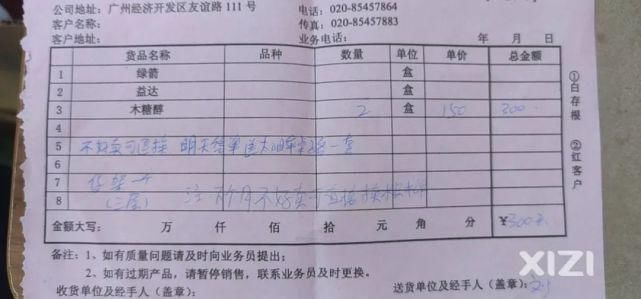 公司地址：广州经济开发区友谊路 111 号 电话：020-85457864
客户名称： 传真：020-85457883
客户地址： 业务电话： 年 月 日
货品名称 品种 数量 单位 单价 总金额
1 绿箭 盒
2 益达 盒
3 木糖醇 2 盒 150 300
4
5 不好卖可退换 明天给单送太阳伞桌椅一套
6
7 货架一个
8 (三层) 注 两个月不好卖可直接换
金额大写： 万 仟 佰 拾 元 角 分 ¥300元
备注：1、如有质量问题请及时向业务员提出；
2、如有过期产品，请暂停销售，联系业务员及时更换。
收货单位及经手人（盖章）： 送货单位及经手人（盖章）：
①白存根 ②红客户
XIZI